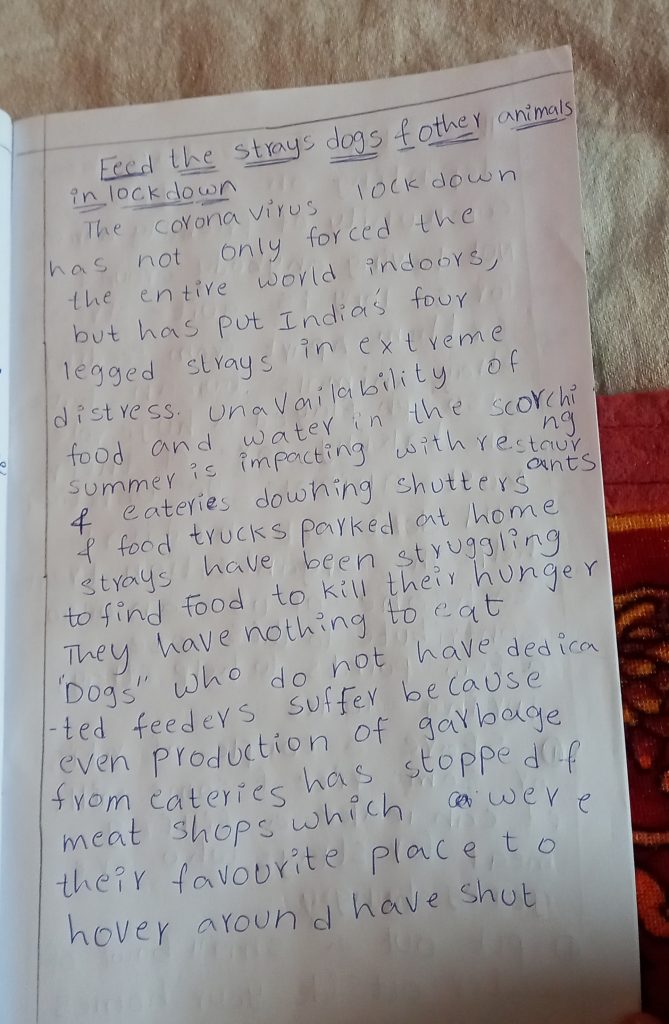 Feed the strays dogs & other animals
in lockdown
The corona virus lockdown
has not only forced the
the entire world indoors,
but has put India's four
legged strays in extreme
distress. Unavailability of
food and water in the scorchi
ng
summer is impacting with restaur
ants
& eateries downing shutters
& food trucks parked at home
strays have been struggling
to find food to kill their hunger
They have nothing to eat
"Dogs" who do not have dedica
-ted feeders suffer because
even production of garbage
from eateries has stopped &
meat shops which were
their favourite place to
hover around have shut